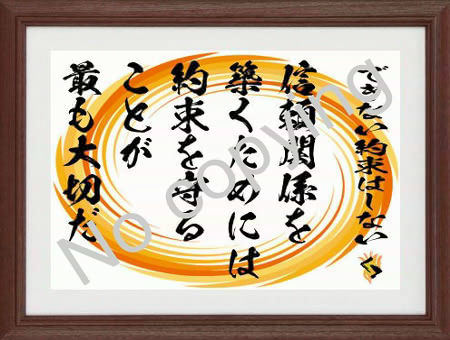 できない約束はしない
信頼関係を
築くためには
約束を守る
ことが
最も大切だ
No copying